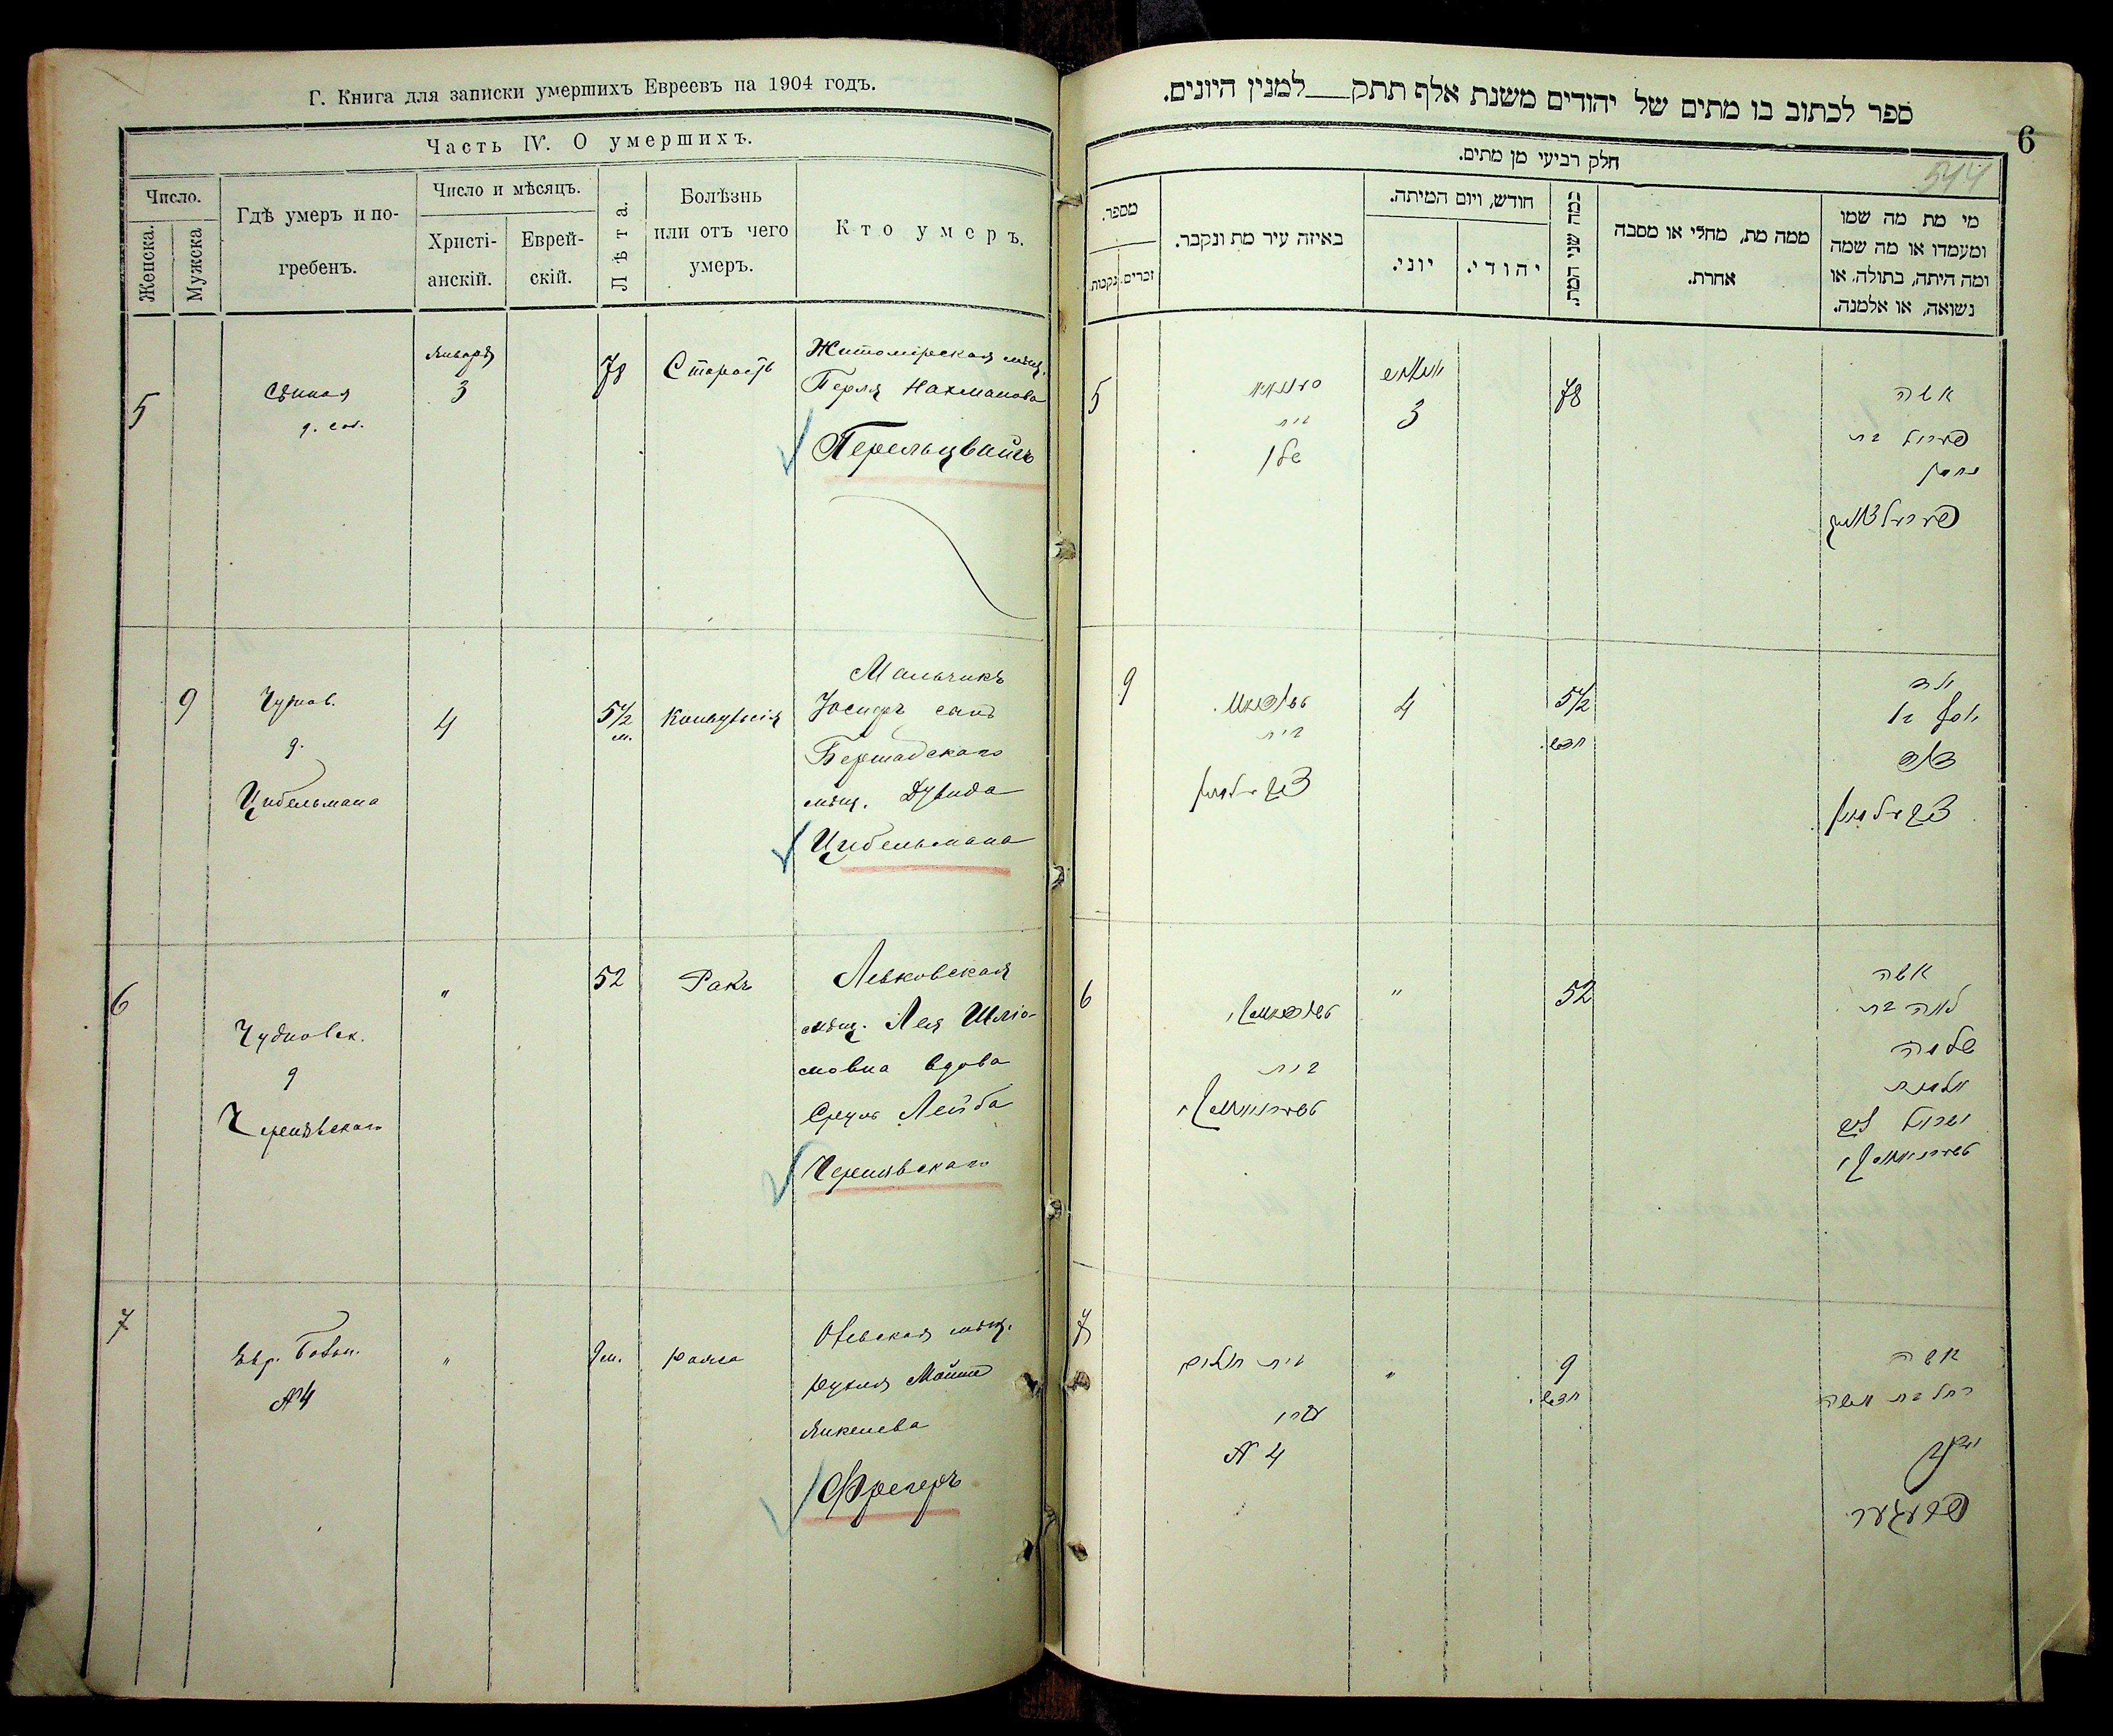 Г. Книга для записки умершихъ Евреевъ на 1904 годъ.
Часть IV. О умершихъ.
Число.
Женска.
Мужска
Гдѣ умеръ и по-
гребенъ.
Число и мѣсяцъ.
Христі-
анскій.
Еврей-
скій.
Лѣта.
Болѣзнь
или отъ чего
умеръ.
Кто умеръ.
5
Сѣнная
января
3
78
Старость
Житомірская мѣщ.
Перля Нахманова
Перельцвайгъ
9
Чуднов.
д.
Цибельмана
4
5 1/2
м.
Конвульсія
Мальчикъ
Іосифъ сынъ
Бершадскаго
мѣщ. Дувида
Цибельмана
6
Чудновск.
д
Чернявскаго
"
52
Ракъ
Левковская
мѣщ. Лея Шліо-
мовна вдова
Сруль Лейба
Чернявскаго
7
Евр.
№ 4
"
9 м.
мѣщ.
Рухля
Янкелева
Фрегеръ
ספר לכתוב בו מתים של יהודים משנת אלף תתק למנין היונים.
6
544
חלק רביעי מן מתים.
מספר.
זכרים.
נקבות.
באיזה עיר מת ונקבר.
חודש, ויום המיתה.
יוני.
יהודי.
כמה שני המת.
ממה מת, מחלי או מסבה
אחרת.
מי מת מה שמו
ומעמדו או מה שמה
ומה היתה, בתולה, או
נשואה, או אלמנה.
5
בית
3
78
אשה
פערל בת
נחמן
פערעלצווייג
9
בית
ציבעלמאן
4
5 1/2
חדש.
ילד
יוסף בן
דוד
ציבעלמאן
6
בית
"
52
אשה
לאה בת
שלמה
אלמנת
ישראל ליב
7
בית חולים
עברי
№ 4
"
9
חדש.
אשה
רחל בת משה
יעקב
פרעגער